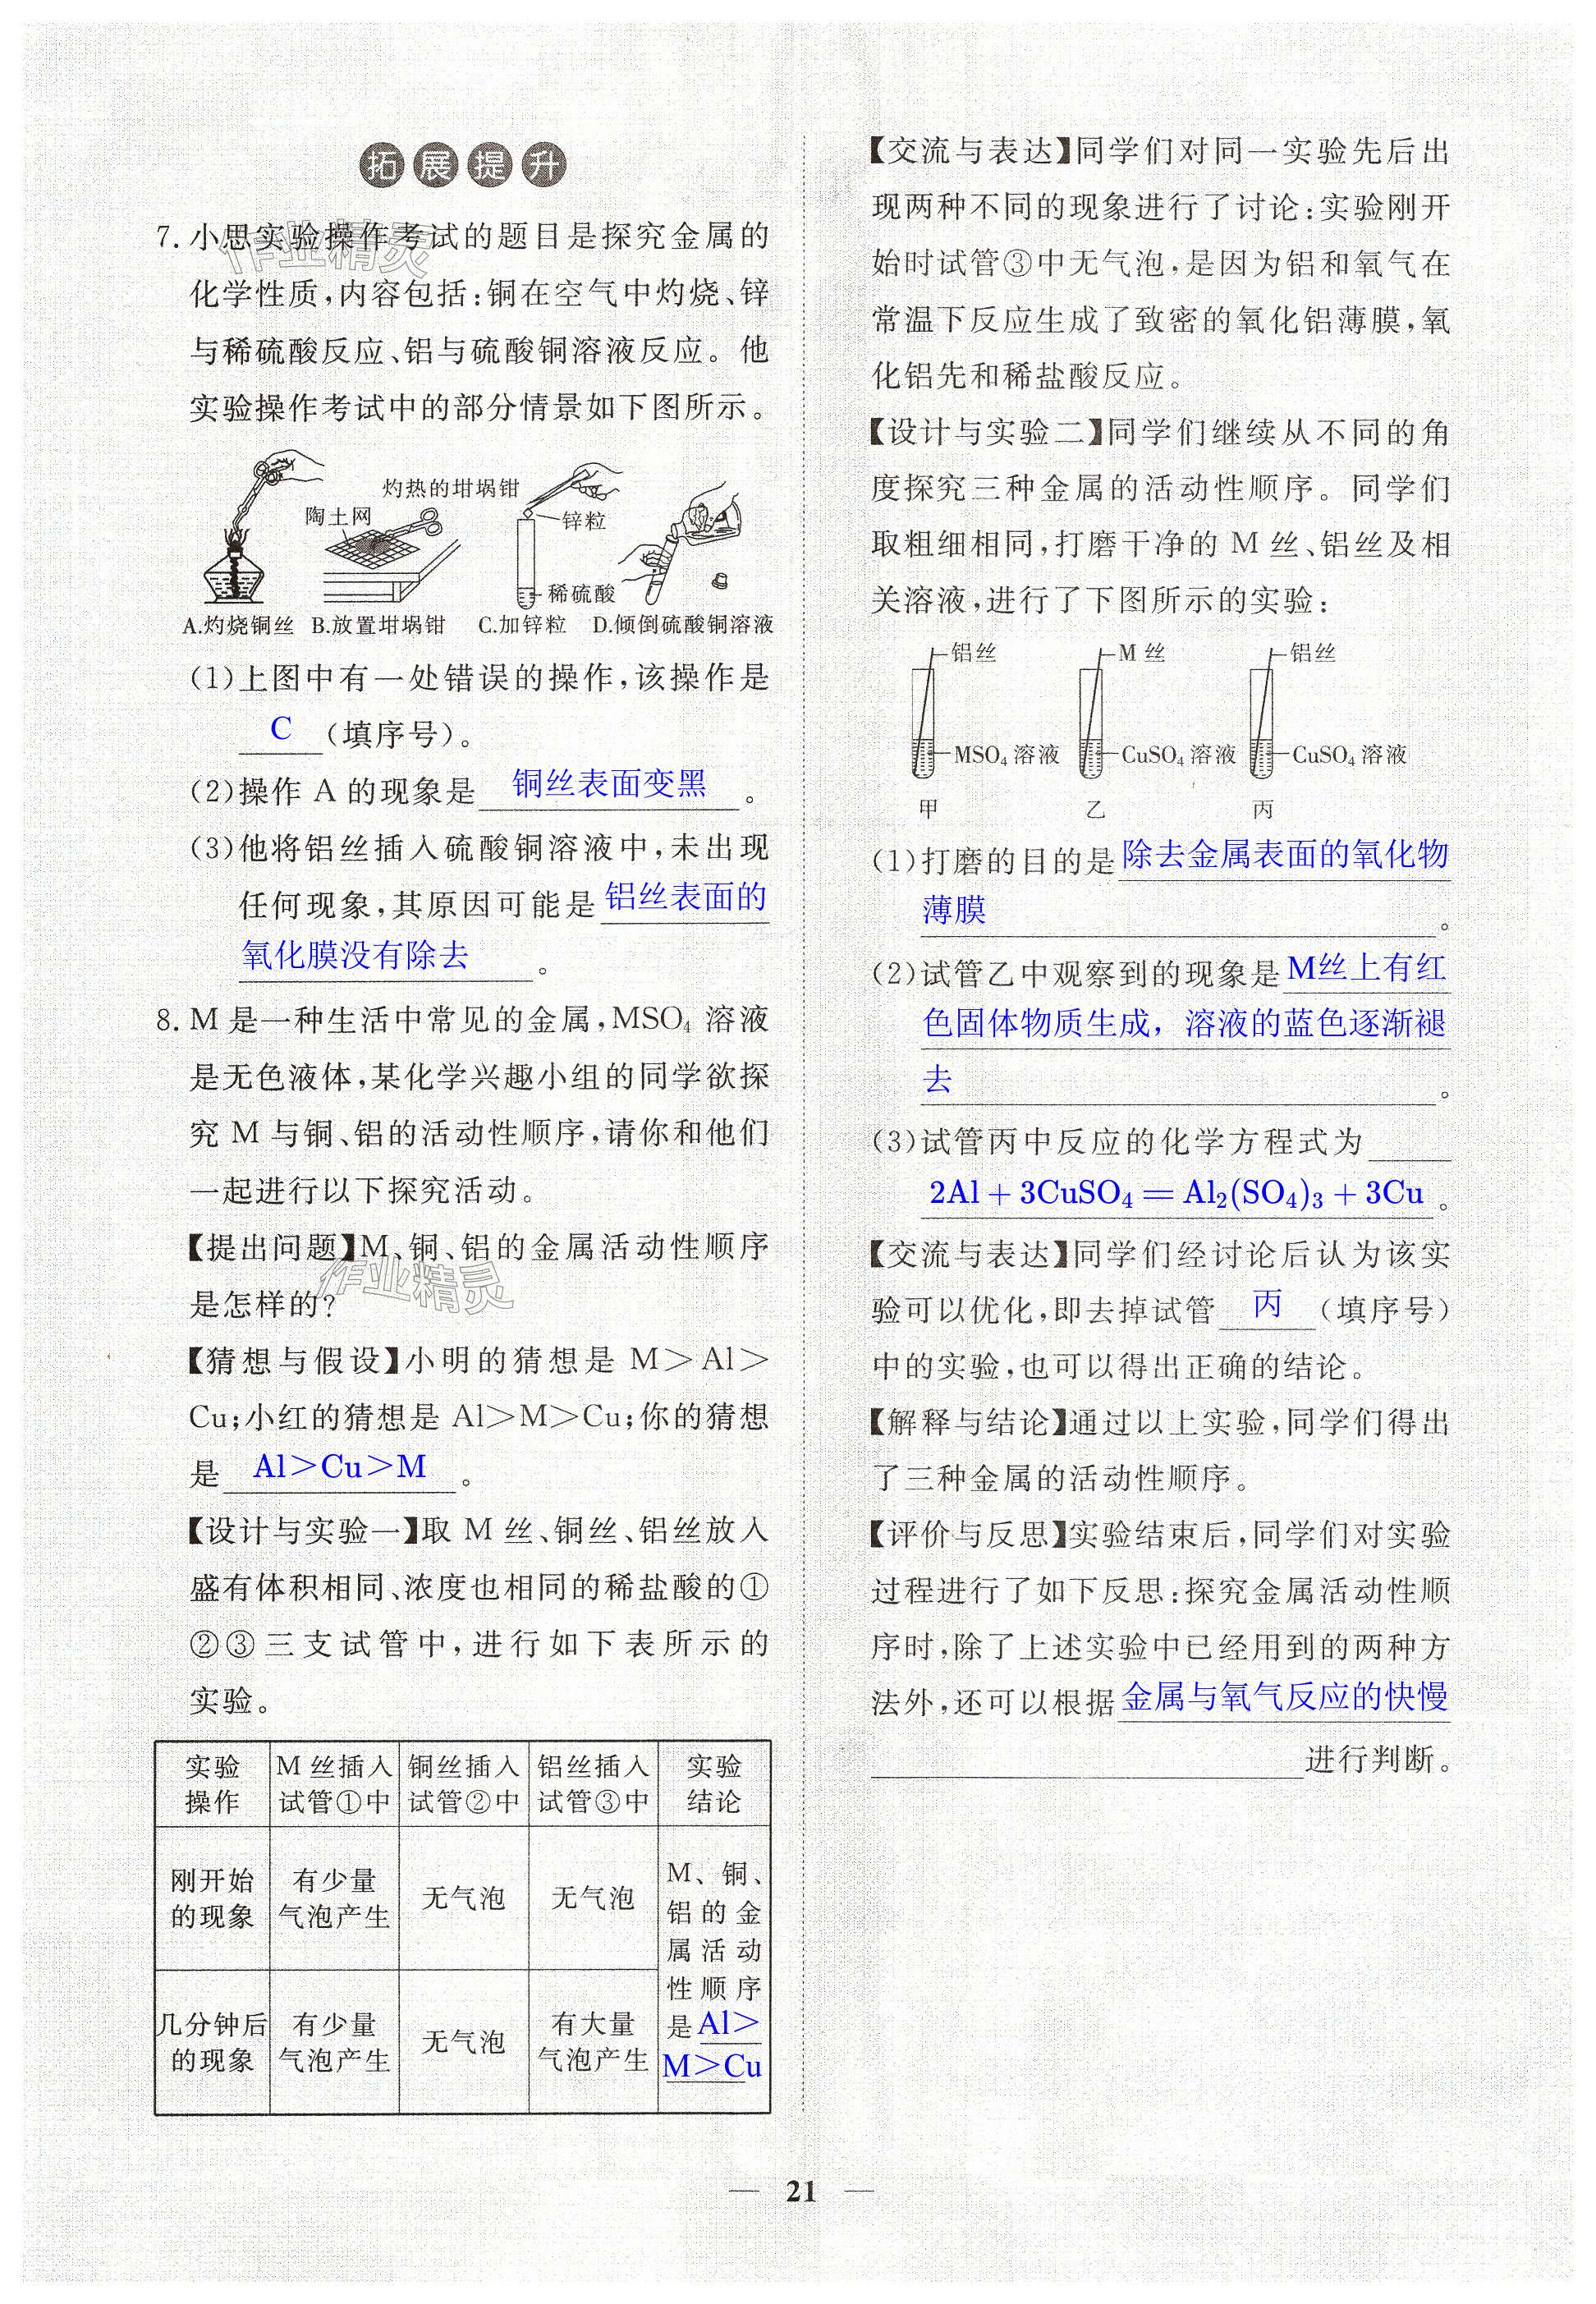 拓展提升
7. 小思实验操作考试的题目是探究金属的
化学性质,内容包括:铜在空气中灼烧、锌
与稀硫酸反应、铝与硫酸铜溶液反应。他
实验操作考试中的部分情景如下图所示。
灼热的坩埚钳
陶土网
锌粒
稀硫酸
A.灼烧铜丝 B.放置坩埚钳 C.加锌粒 D.倾倒硫酸铜溶液
(1)上图中有一处错误的操作,该操作是
C (填序号)。
(2)操作 A 的现象是 铜丝表面变黑 。
(3)他将铝丝插入硫酸铜溶液中,未出现
任何现象,其原因可能是 铝丝表面的
氧化膜没有除去 。
8. M 是一种生活中常见的金属,MSO₄ 溶液
是无色液体,某化学兴趣小组的同学欲探
究 M 与铜、铝的活动性顺序,请你和他们
一起进行以下探究活动。
【提出问题】M、铜、铝的金属活动性顺序
是怎样的?
【猜想与假设】小明的猜想是 M＞Al＞
Cu;小红的猜想是 Al＞M＞Cu;你的猜想
是 Al＞Cu＞M 。
【设计与实验一】取 M 丝、铜丝、铝丝放入
盛有体积相同、浓度也相同的稀盐酸的①
②③三支试管中,进行如下表所示的
实验。
实验操作 M 丝插入试管①中 铜丝插入试管②中 铝丝插入试管③中 实验结论
刚开始的现象 有少量气泡产生 无气泡 无气泡
几分钟后的现象 有少量气泡产生 无气泡 有大量气泡产生
M、铜、
铝的金
属活动
性顺序
是 Al＞
M＞Cu
【交流与表达】同学们对同一实验先后出
现两种不同的现象进行了讨论:实验刚开
始时试管③中无气泡,是因为铝和氧气在
常温下反应生成了致密的氧化铝薄膜,氧
化铝先和稀盐酸反应。
【设计与实验二】同学们继续从不同的角
度探究三种金属的活动性顺序。同学们
取粗细相同,打磨干净的 M 丝、铝丝及相
关溶液,进行了下图所示的实验:
铝丝 M 丝 铝丝
MSO₄ 溶液 CuSO₄ 溶液 CuSO₄ 溶液
甲 乙 丙
(1)打磨的目的是 除去金属表面的氧化物
薄膜 。
(2)试管乙中观察到的现象是 M丝上有红
色固体物质生成，溶液的蓝色逐渐褪
去 。
(3)试管丙中反应的化学方程式为
2Al + 3CuSO₄ = Al₂(SO₄)₃ + 3Cu 。
【交流与表达】同学们经讨论后认为该实
验可以优化,即去掉试管 丙 (填序号)
中的实验,也可以得出正确的结论。
【解释与结论】通过以上实验,同学们得出
了三种金属的活动性顺序。
【评价与反思】实验结束后,同学们对实验
过程进行了如下反思:探究金属活动性顺
序时,除了上述实验中已经用到的两种方
法外,还可以根据 金属与氧气反应的快慢
进行判断。
作业精灵
作业精灵
— 21 —